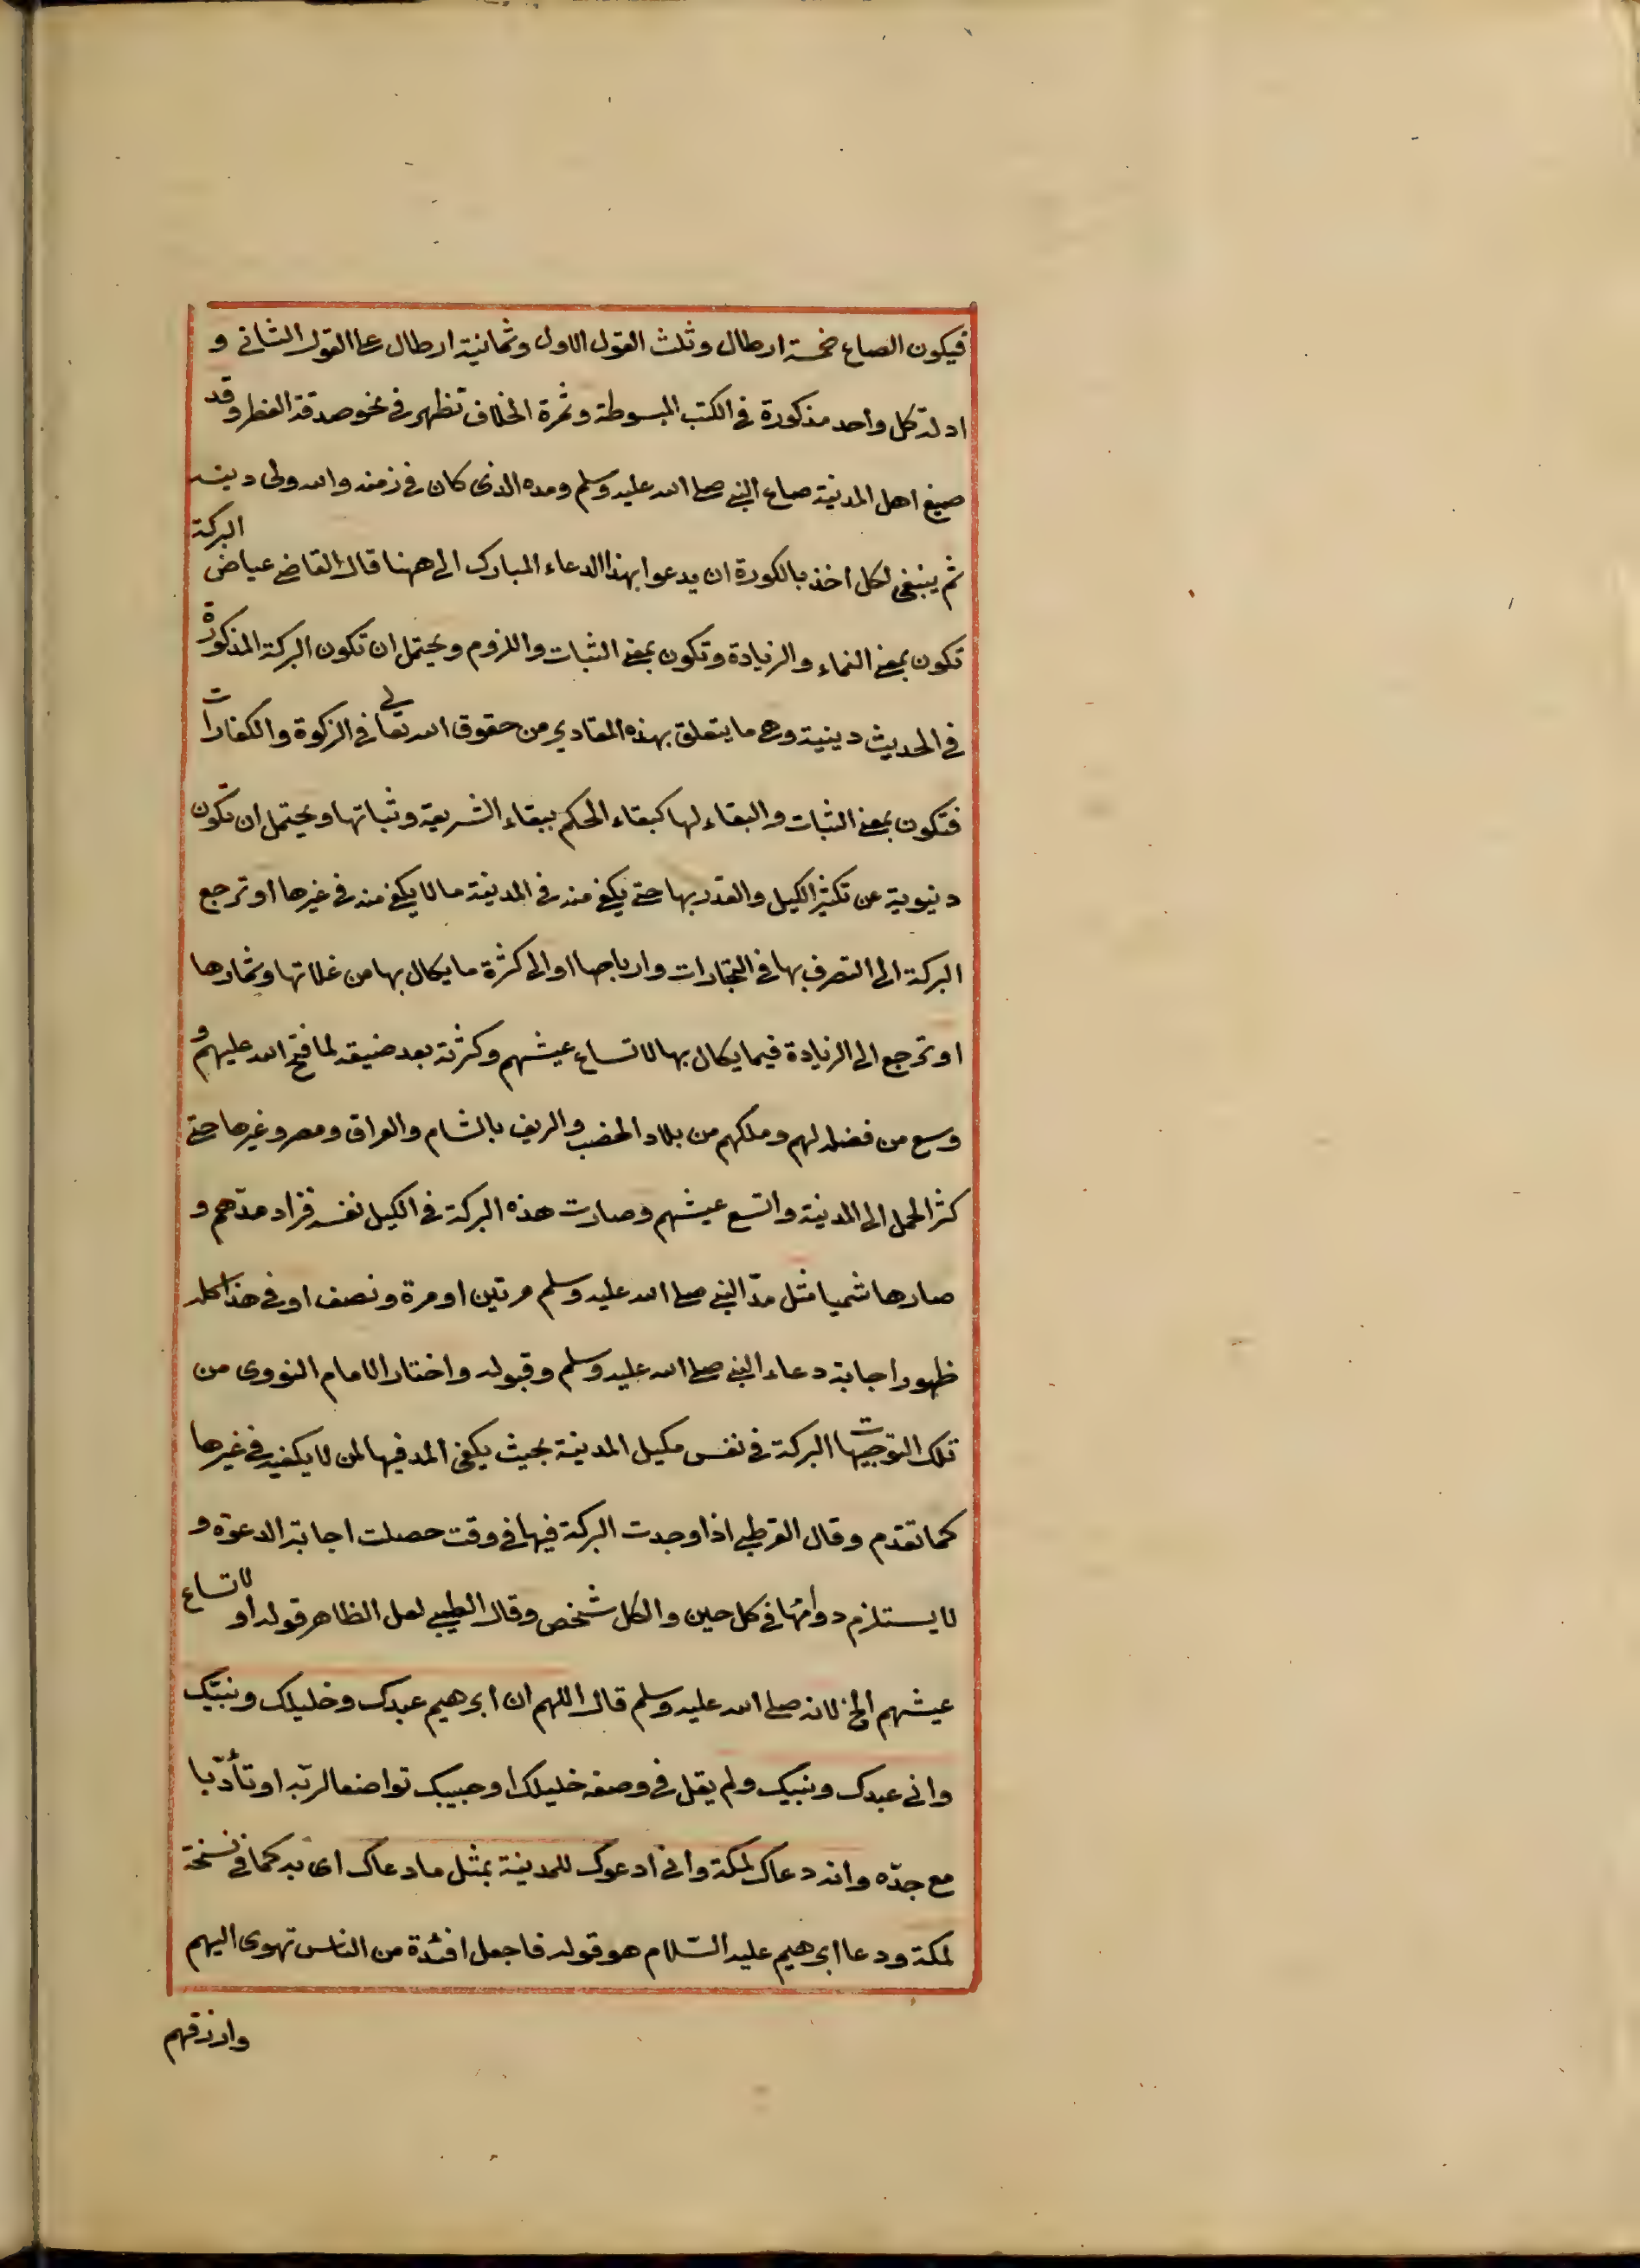 فيكون الصاع خمسة ارطال وثلث القول الاول وثمانية ارطال على القول الثانى و
ادلة كل واحد مذكورة فى الكتب المبسوطة وثمرة الخلاف تظهر فى نحو صدقة الفطر وقد
صيغ اهل المدينة صاع النبى صلى الله عليه وسلم ومده الذى كان فى زمنه والله ولى دينه
ثم ينبغى لكل اخذ بالكورة ان يدعوا بهذا الدعاء المبارك الى ههنا قال القاضى عياض البركة
تكون بمعنى النماء والزيادة وتكون بمعنى الثبات واللزوم ويحتمل ان تكون البركة المذكورة
فى الحديث دينية وهى ما يتعلق بهذه المقادير من حقوق الله تعالى فى الزكوة والكفارات
فتكون بمعنى الثبات والبقاء لها كبقاء الحكم ببقاء الشريعة وثباتها ويحتمل ان تكون
دنيوية عن تكثير الكيل والقدر بها حتى يكفى منه فى المدينة ما لا يكفى منه فى غيرها او ترجع
البركة الى التصرف بها فى التجارات وارباحها او الى كثرة ما يكال بها من غلاتها وثمارها
او ترجع الى الزيادة فيما يكال بها لاتساع عيشهم وكثرته بعد ضيقه لما فتح الله عليهم و
وسع من فضله لهم وملكهم من بلاد الخصب والريف بالشام والعراق ومصر وغيرها حتى
كثر الحمل الى المدينة واتسع عيشهم وصارت هذه البركة فى الكيل نفسه فزاد مدّهم و
صار هاشميا مثل مدّ النبى صلى الله عليه وسلم مرتين او مرة ونصف او فى هذا كله
ظهور اجابة دعاء النبى صلى الله عليه وسلم وقبوله واختار الامام النووى من
تلك التوجيهات البركة فى نفس مكيل المدينة بحيث يكفى المد فيها لمن لا يكفيه فى غيرها
كما تقدم وقال القرطبى اذا وجدت البركة فيها فى وقت حصلت اجابة الدعوة و
لا يستلزم دوامها فى كل حين والكل شخص وقال الطيبى لعل الظاهر قوله او لاتساع
عيشهم الخ لانه صلى الله عليه وسلم قال اللهم ان ابرهيم عبدك وخليلك ونبيّك
وانى عبدك ونبيك ولم يقل فى وصفه خليلك او حبيبك تواضعا لربّه او تأدّبا
مع جدّه وانه دعاك لمكة وانى ادعوك للمدينة بمثل ما دعاك اى به كما فى نسخة
لمكة ودعا ابرهيم عليه السّلام هو قوله فاجعل افئدة من الناس تهوى اليهم
وارزقهم